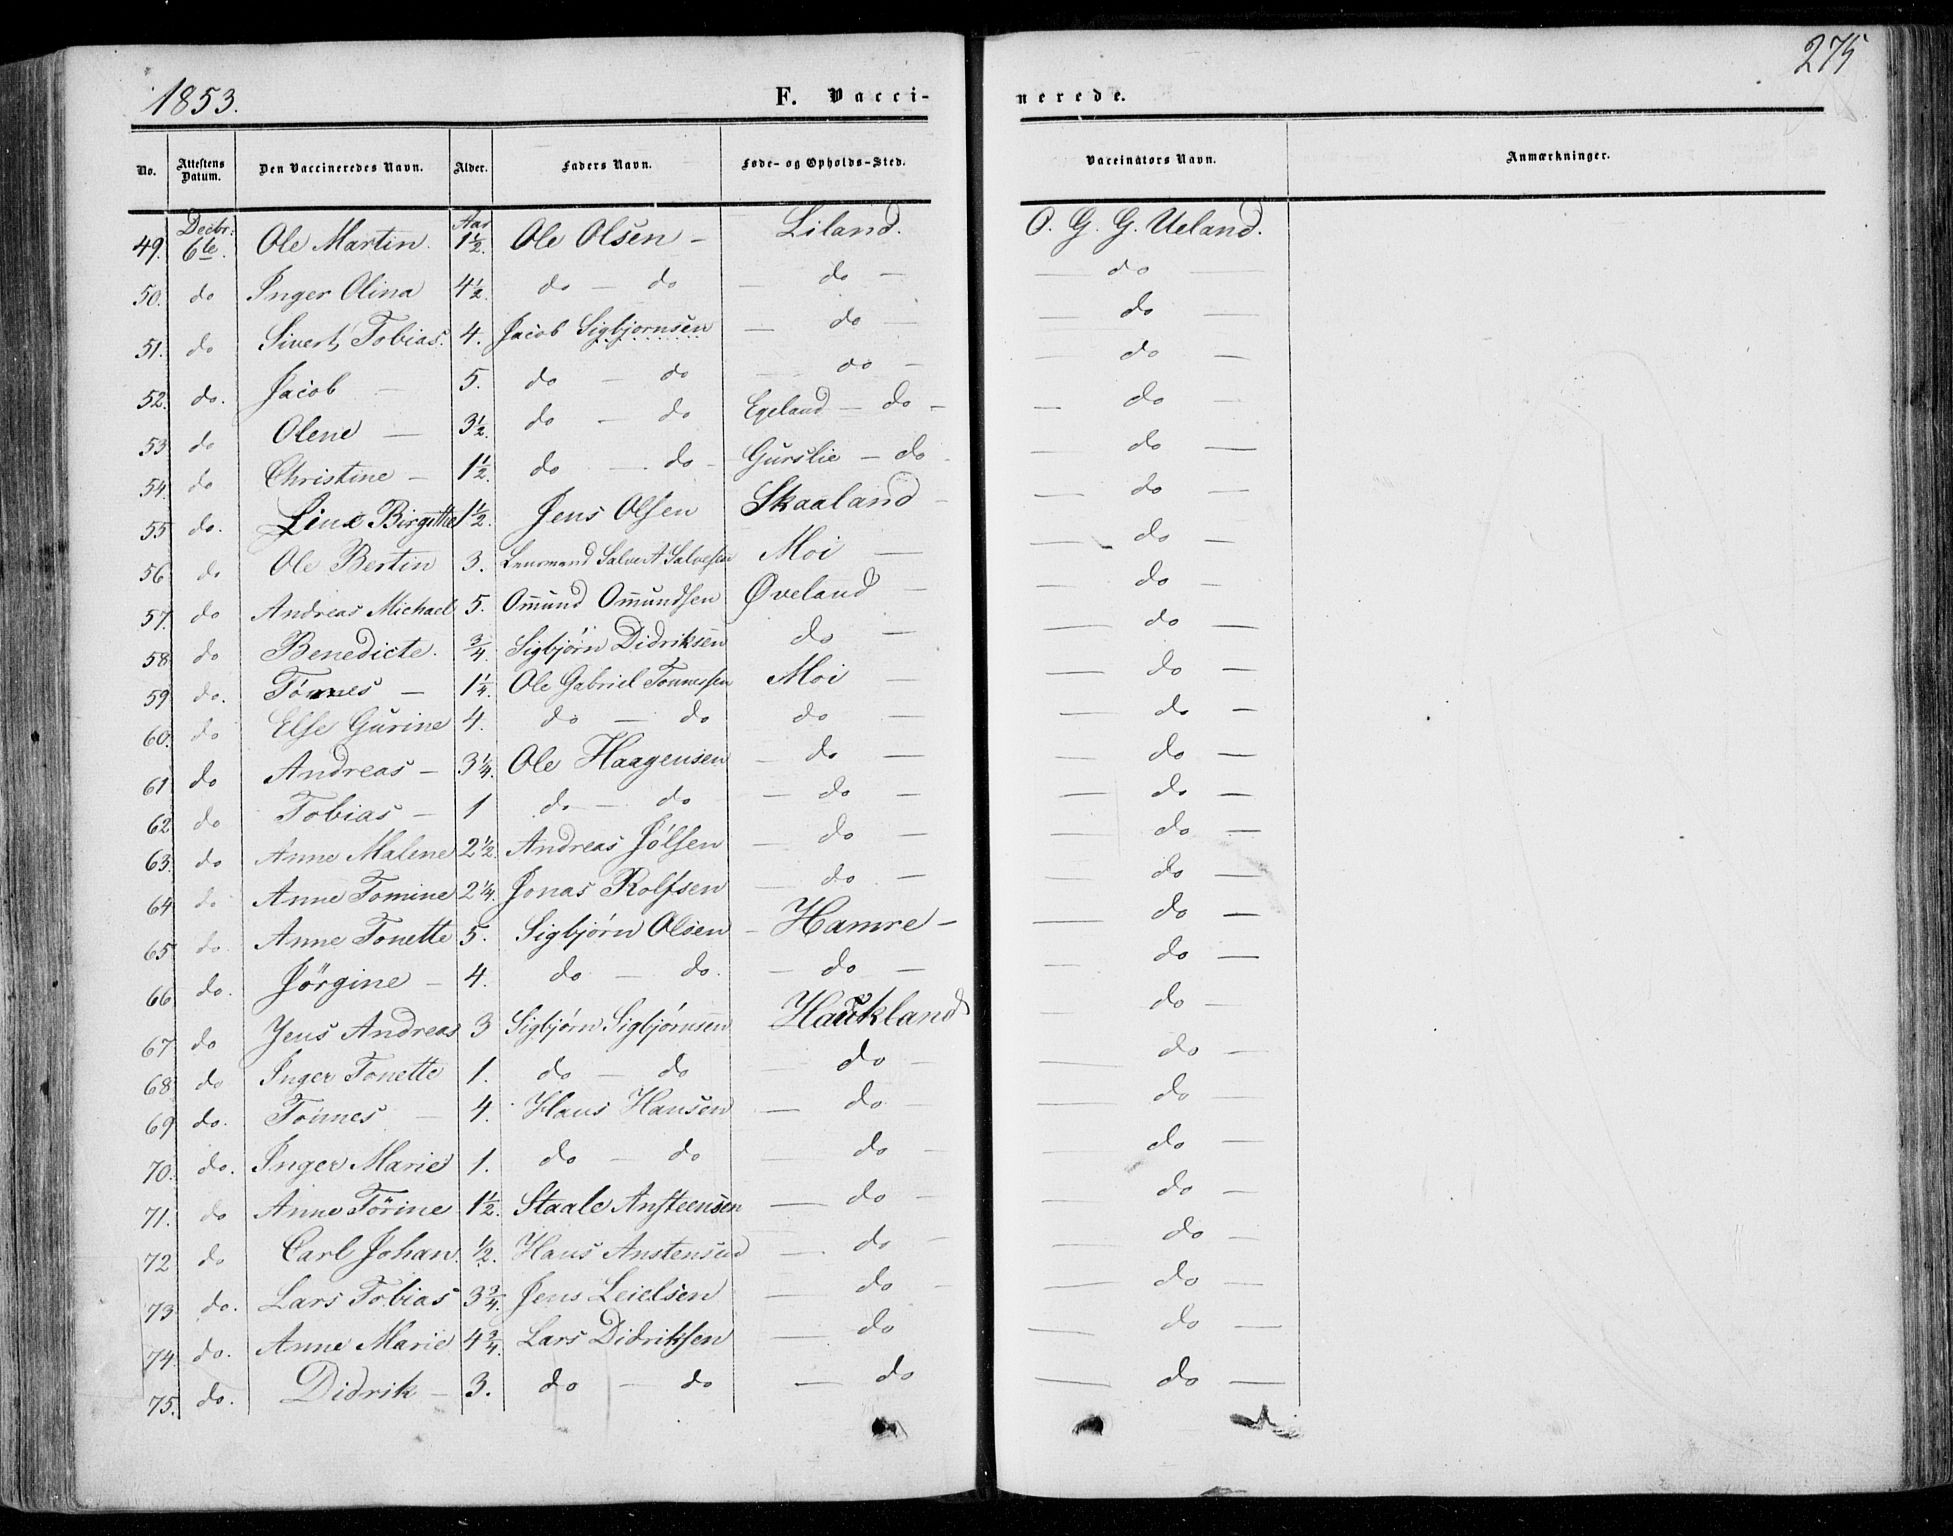 1853.
F. Vacci-
nerede.
275
No. Attestens Datum. Den Vaccineredes Navn. Alder. Faders Navn. Føde- og Opholds-Sted. Vaccinators Navn. Anmærkninger.
49. Decbr. 6te. Ole Martin. Aar 1½. Ole Olsen - Liland. O. G. G. Ueland.
50. do Inger Olina 4½. do - do - do - - do -
51. do Sivert Tobias. 4. Jacob Sigbjørnsen - do - - do -
52. do. Jacob - 5. do - do - do - - do -
53 do Olene - 3½. do - do Egeland - do - - do -
54. do Christine - 1½. do - do - Gurslie - do - do -
55 do. Line Birgitthe 1½. Jens Olsen Skaaland - - do -
56 do Ole Bertin 3. Lensmand Salve A Salvesen Moi - - do -
57. do Andreas Michael 5. Omund Omundsen Øveland - - do -
58 do Benedicte. ¾. Sigbjørn Didriksen do - - do -
59 do. Tønnes - 1¼. Ole Gabriel Tønnessen Moi - - do -
60. do Else Gurine 4. do - do do - - do -
61 do Andreas - 3¼. Ole Haagensen - do - - do -
62 do Tobias - 1 do - do - do - - do -
63. do Anne Malene 2½. Andreas Jølsen - do - - do -
64 do Anne Tomine 2¼. Jonas Rolfsen - do - - do -
65 do. Anne Tonette 5. Sigbjørn Olsen - Hamre - - do -
66 do. Jørgine - 4. do - do. - do - - do -
67 do Jens Andreas 3 Sigbjørn Sigbjørnsen Haukland - do -
68 do Inger Tonette 1. do - do - do - - do -
69 do. Tønnes - 4. Hans Hansen - do - - do -
70. do. Inger Marie 1. do - do - do - - do -
71. do Anne Tørine 1½. Staale Ansteensen - do - - do -
72 do Carl Johan. ½. Hans Anstensen - do - - do -
73 do. Lars Tobias 3¾. Jens - do - - do -
74. do. Anne Marie 4¾. Lars Didriksen - do - do -
75. do. Didrik - 3. do - do - do - do -